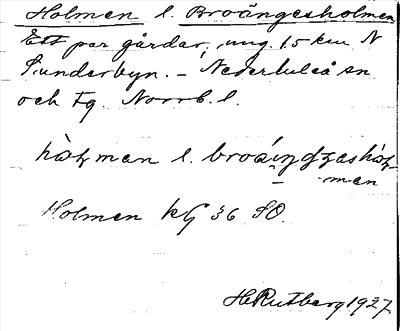 Holmen l. Broängesholmen
Ett par gårdar, ung. 1.5 km N
Sunderbyn. – Nederluleå sn
och tg. Norrb. l.
hòlman l. broáŋʒashòl-
man
Holmen kG 36 SO.
H Rutberg 1927